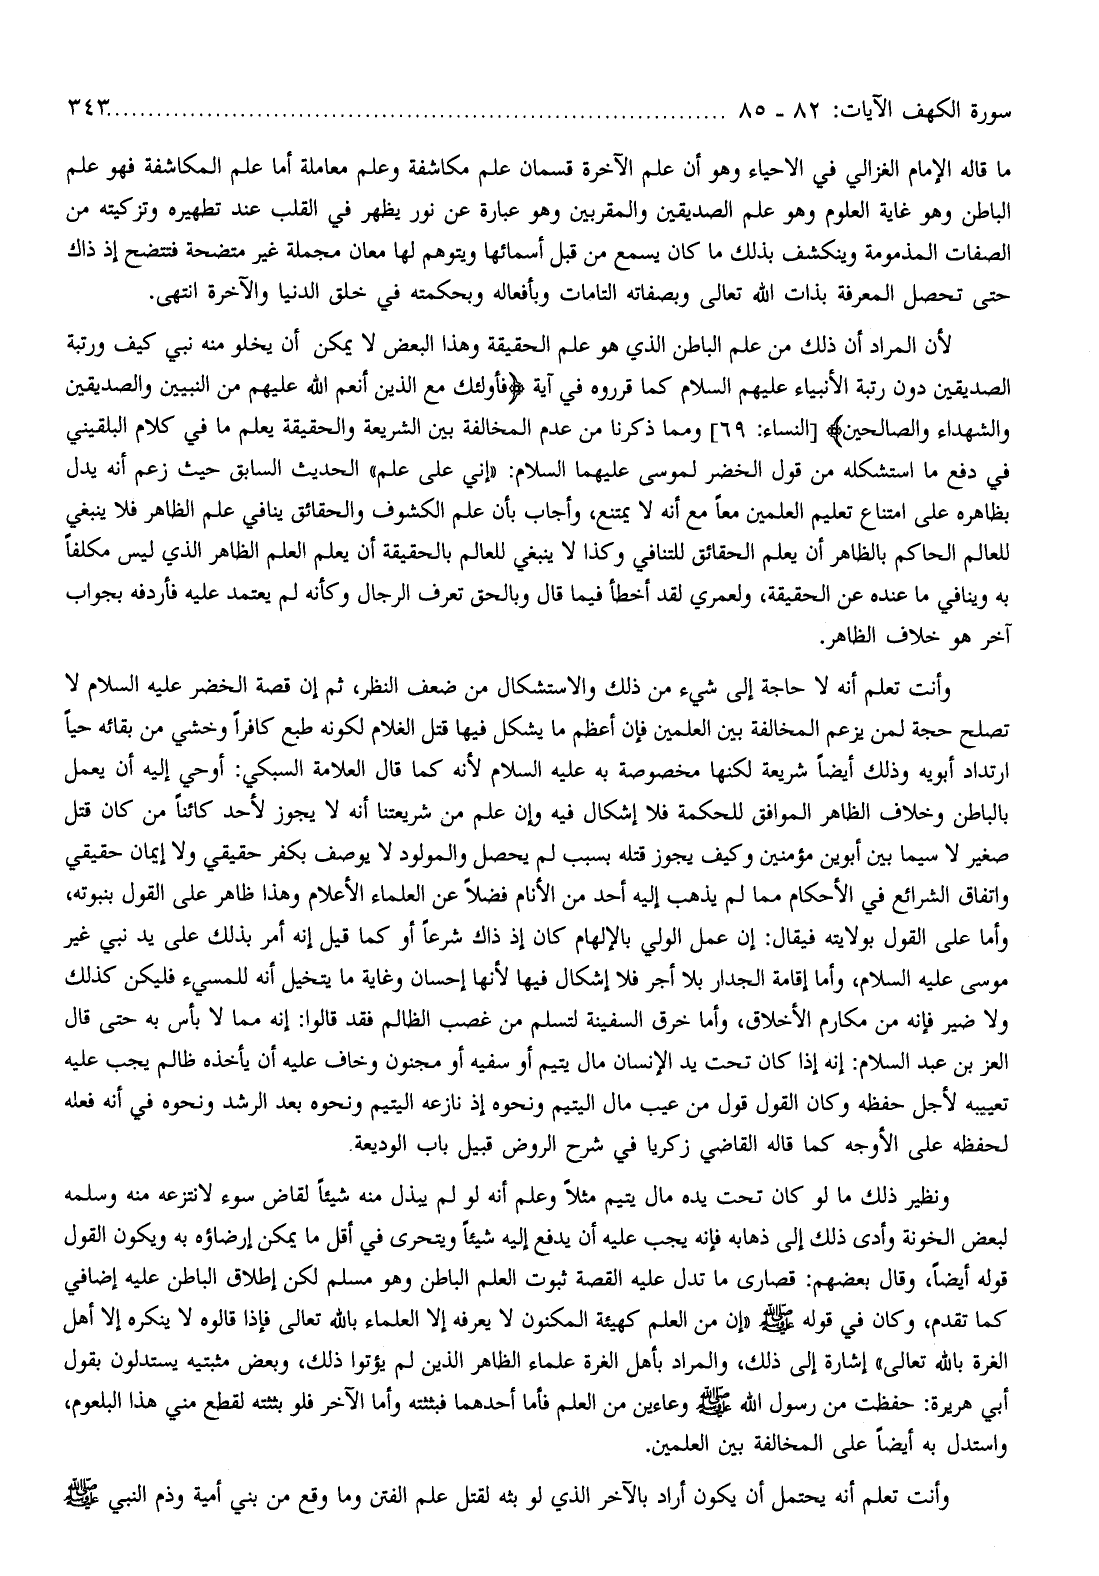 سورة الكهف الآيات: ٨٢ - ٨٥ ........................................................................ ٣٤٣
ما قاله الإمام الغزالي في الاحياء وهو أن علم الآخرة قسمان علم مكاشفة وعلم معاملة أما علم المكاشفة فهو علم
الباطن وهو غاية العلوم وهو علم الصديقين والمقربين وهو عبارة عن نور يظهر في القلب عند تطهيره وتزكيته من
الصفات المذمومة وينكشف بذلك ما كان يسمع من قبل أسمائها ويتوهم لها معان مجملة غير متضحة فتتضح إذ ذاك
حتى تحصل المعرفة بذات الله تعالى وبصفاته التامات وبأفعاله وبحكمته في خلق الدنيا والآخرة انتهى.
لأن المراد أن ذلك من علم الباطن الذي هو علم الحقيقة وهذا البعض لا يمكن أن يخلو منه نبي كيف ورتبة
الصديقين دون رتبة الأنبياء عليهم السلام كما قرروه في آية ﴿فأولئك مع الذين أنعم الله عليهم من النبيين والصديقين
والشهداء والصالحين﴾ [النساء: ٦٩] ومما ذكرنا من عدم المخالفة بين الشريعة والحقيقة يعلم ما في كلام البلقيني
في دفع ما استشكله من قول الخضر لموسى عليهما السلام: «إني على علم» الحديث السابق حيث زعم أنه يدل
بظاهره على امتناع تعليم العلمين معاً مع أنه لا يمتنع، وأجاب بأن علم الكشوف والحقائق ينافي علم الظاهر فلا ينبغي
للعالم الحاكم بالظاهر أن يعلم الحقائق للتنافي وكذا لا ينبغي للعالم بالحقيقة أن يعلم العلم الظاهر الذي ليس مكلفاً
به وينافي ما عنده عن الحقيقة، ولعمري لقد أخطأ فيما قال وبالحق تعرف الرجال وكأنه لم يعتمد عليه فأردفه بجواب
آخر هو خلاف الظاهر.
وأنت تعلم أنه لا حاجة إلى شيء من ذلك والاستشكال من ضعف النظر، ثم إن قصة الخضر عليه السلام لا
تصلح حجة لمن يزعم المخالفة بين العلمين فإن أعظم ما يشكل فيها قتل الغلام لكونه طبع كافراً وخشي من بقائه حياً
ارتداد أبويه وذلك أيضاً شريعة لكنها مخصوصة به عليه السلام لأنه كما قال العلامة السبكي: أوحي إليه أن يعمل
بالباطن وخلاف الظاهر الموافق للحكمة فلا إشكال فيه وإن علم من شريعتنا أنه لا يجوز لأحد كائناً من كان قتل
صغير لا سيما بين أبوين مؤمنين وكيف يجوز قتله بسبب لم يحصل والمولود لا يوصف بكفر حقيقي ولا إيمان حقيقي
واتفاق الشرائع في الأحكام مما لم يذهب إليه أحد من الأنام فضلاً عن العلماء الأعلام وهذا ظاهر على القول بنبوته،
وأما على القول بولايته فيقال: إن عمل الولي بالإلهام كان إذ ذاك شرعاً أو كما قيل إنه أمر بذلك على يد نبي غير
موسى عليه السلام، وأما إقامة الجدار بلا أجر فلا إشكال فيها لأنها إحسان وغاية ما يتخيل أنه للمسيء فليكن كذلك
ولا ضير فإنه من مكارم الأخلاق، وأما خرق السفينة لتسلم من غصب الظالم فقد قالوا: إنه مما لا بأس به حتى قال
العز بن عبد السلام: إنه إذا كان تحت يد الإنسان مال يتيم أو سفيه أو مجنون وخاف عليه أن يأخذه ظالم يجب عليه
تعييبه لأجل حفظه وكان القول قول من عيب مال اليتيم ونحوه إذ نازعه اليتيم ونحوه بعد الرشد ونحوه في أنه فعله
لحفظه على الأوجه كما قاله القاضي زكريا في شرح الروض قبيل باب الوديعة.
ونظير ذلك ما لو كان تحت يده مال يتيم مثلاً وعلم أنه لو لم يبذل منه شيئاً لقاض سوء لانتزعه منه وسلمه
لبعض الخونة وأدى ذلك إلى ذهابه فإنه يجب عليه أن يدفع إليه شيئاً ويتحرى في أقل ما يمكن إرضاؤه به ويكون القول
قوله أيضاً، وقال بعضهم: قصارى ما تدل عليه القصة ثبوت العلم الباطن وهو مسلم لكن إطلاق الباطن عليه إضافي
كما تقدم، وكان في قوله ﷺ «إن من العلم كهيئة المكنون لا يعرفه إلا العلماء بالله تعالى فإذا قالوه لا ينكره إلا أهل
الغرة بالله تعالى» إشارة إلى ذلك، والمراد بأهل الغرة علماء الظاهر الذين لم يؤتوا ذلك، وبعض مثبتيه يستدلون بقول
أبي هريرة: حفظت من رسول الله ﷺ وعاءين من العلم فأما أحدهما فبثثته وأما الآخر فلو بثثته لقطع مني هذا البلعوم،
واستدل به أيضاً على المخالفة بين العلمين.
وأنت تعلم أنه يحتمل أن يكون أراد بالآخر الذي لو بثه لقتل علم الفتن وما وقع من بني أمية وذم النبي ﷺ